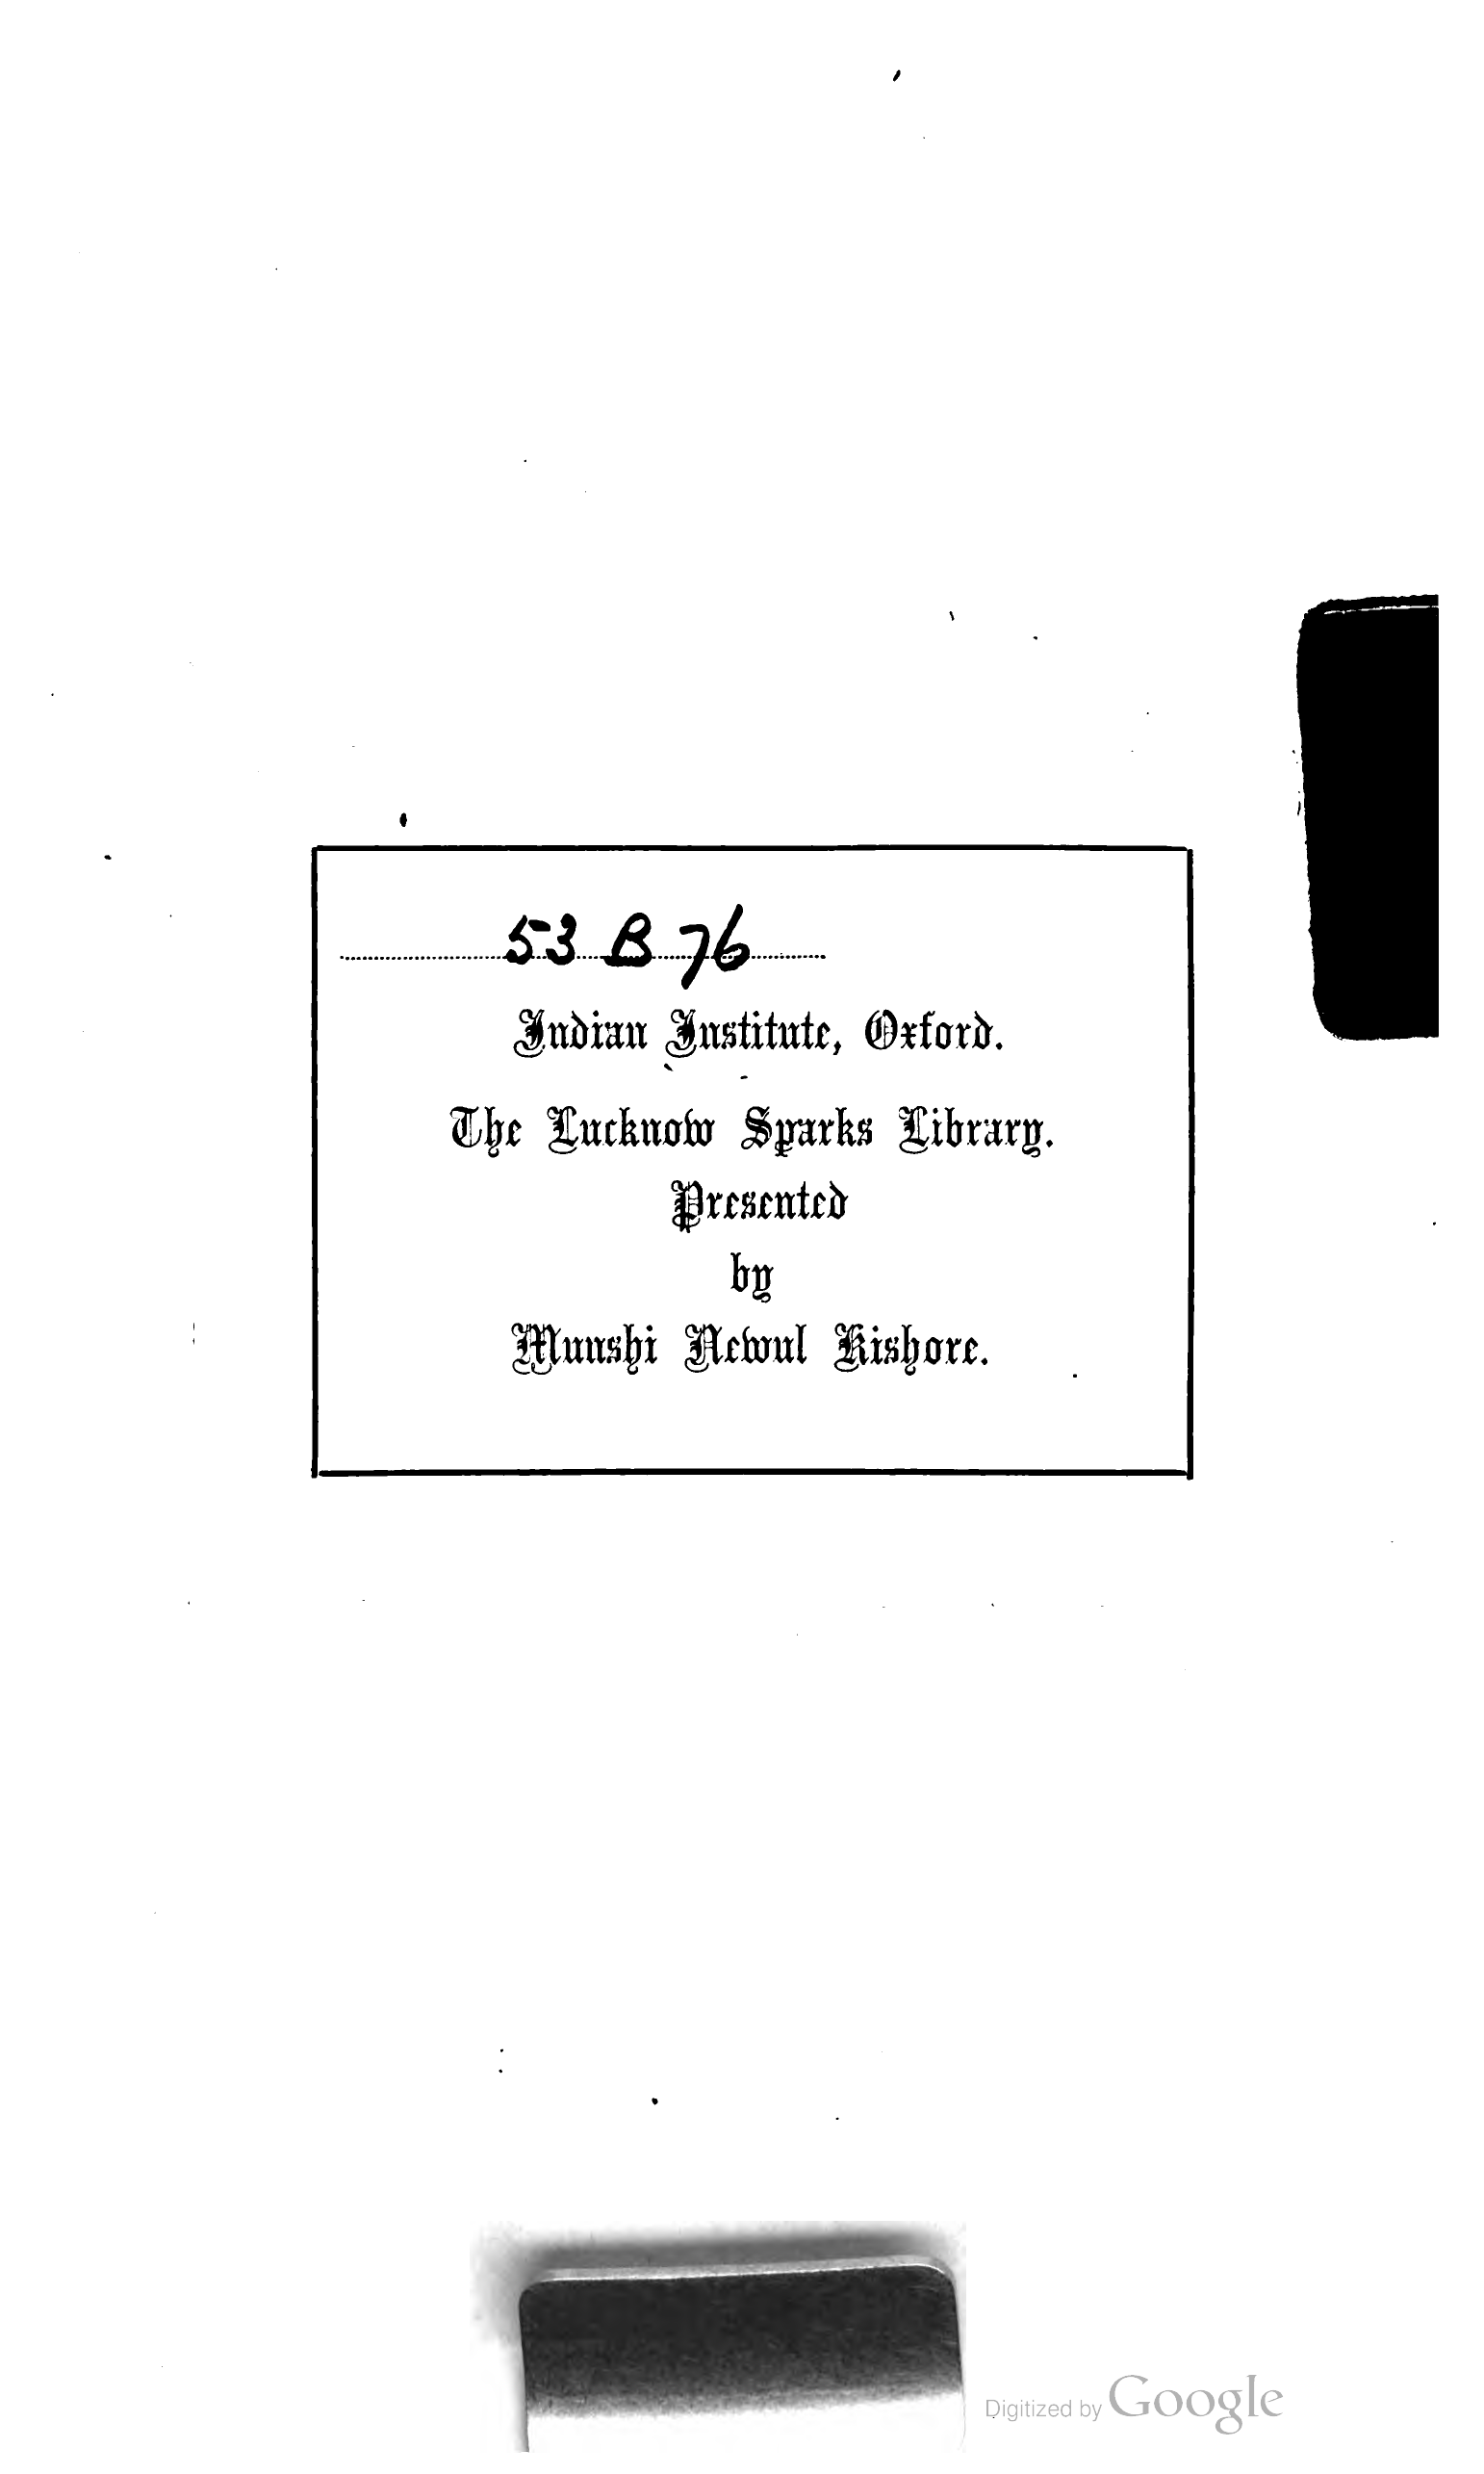 53 B 76
Indian Institute, Oxford.
The Lucknow Sparks Library.
Presented
by
Munshi Newul Kishore.
Digitized by Google